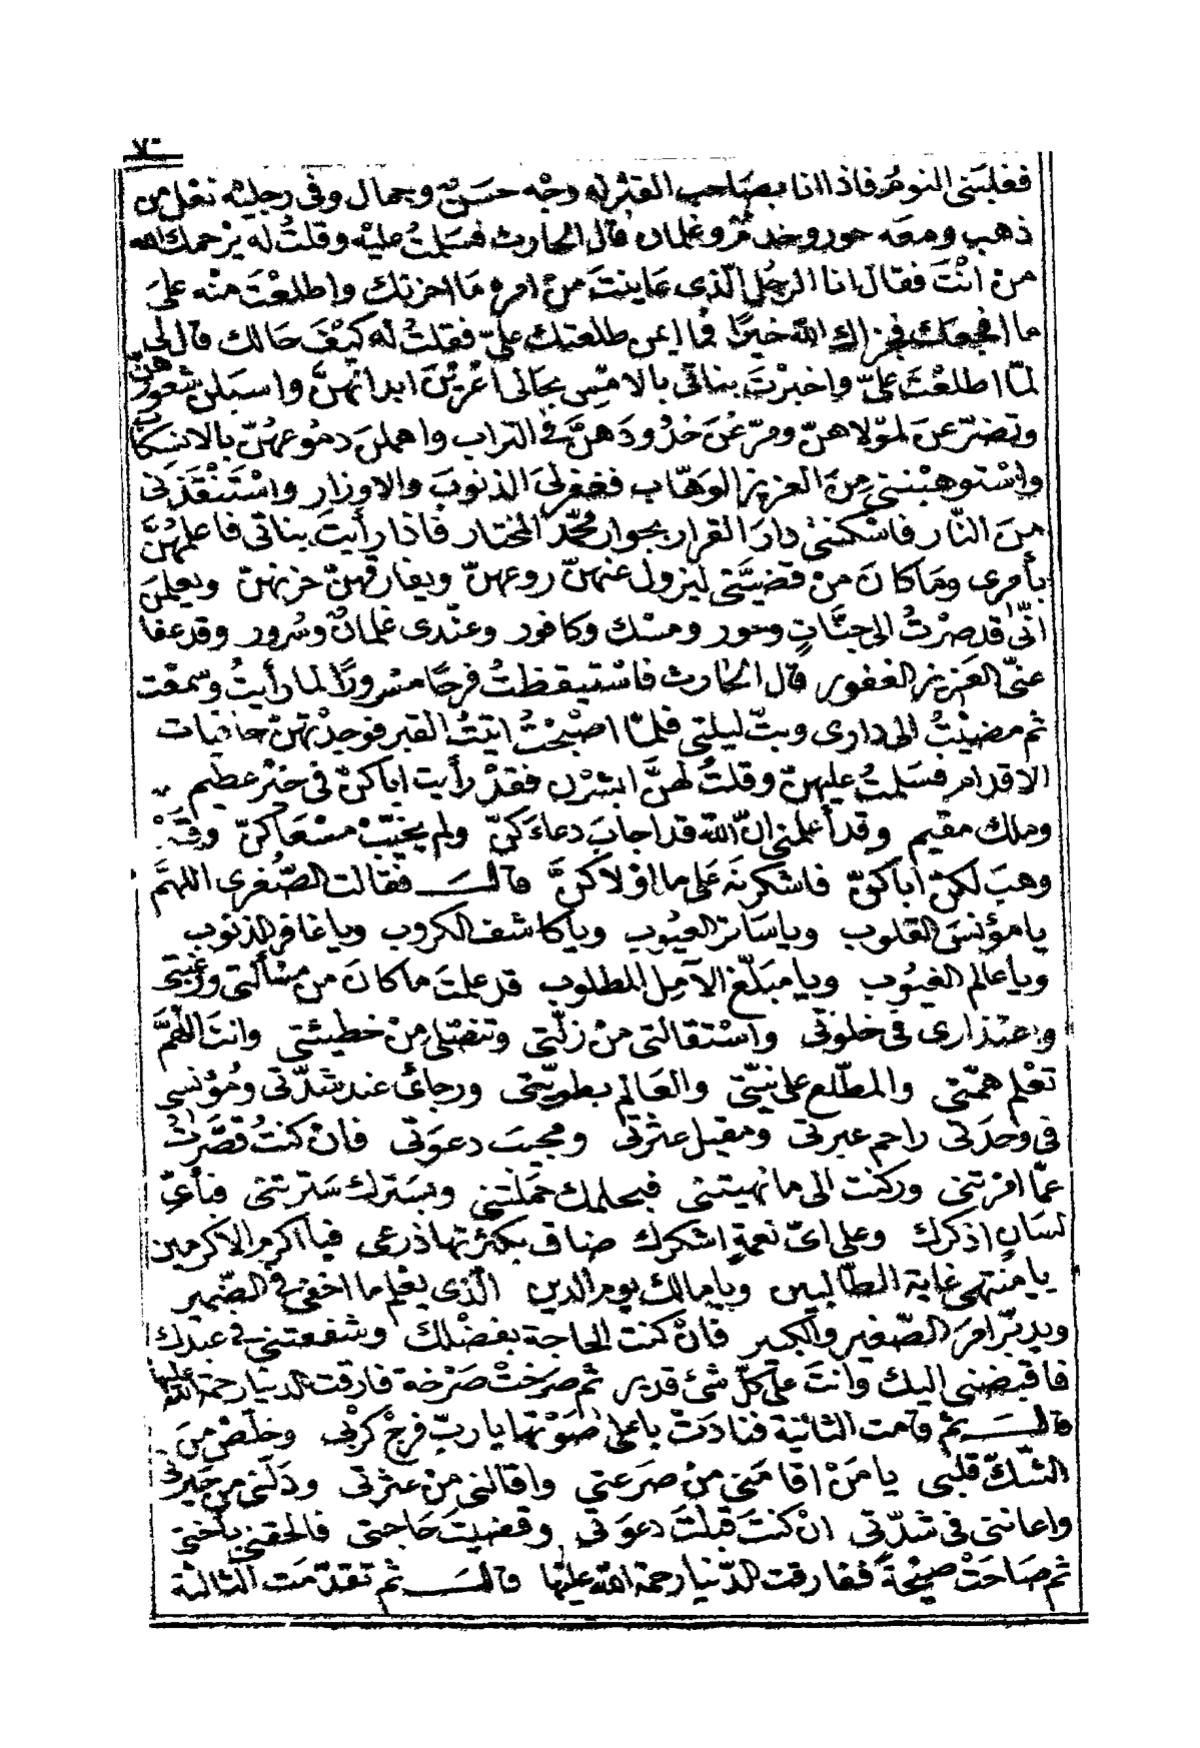 ٧٠
فغلبنى النوم فاذا انا بصاحب القبر له وجه حسن وجمال وفى رجليه نعل من
ذهب ومعه حور وخدم وغلمان قال الحارث فسلمت عليه وقلت له يرحمك الله
من انت فقال انا الرجل الذى عاينت من امره ما احزنك واطلعت منه على
ما افجعك فجزاك الله خيرا فما ايمن طلعتك على فقلت له كيف حالك قال لى
لما اطلعت على واخبرت بناتى بالامس بحالى اعرين ابدانهن واسبلن شعورهن
وتضرعن لمولاهن ومرغن خدودهن فى التراب واهملن دموعهن بالانسكاب
واستوهبننى من العزيز الوهاب فغفر لى الذنوب والاوزار واستنقذنى
من النار فاسكننى دار القرار بجوار محمد المختار فاذا رأيت بناتى فاعلمهن
بأمرى وما كان من قضيتى ليزول عنهن روعهن ويفارقهن حزنهن ويعلمن
انى قد صرت الى جنات وحور ومسك وكافور وعندى غلمان وسرور وقد عفا
عنى العزيز الغفور قال الحارث فاستيقظت فرحا مسرورا لما رأيت وسمعت
ثم مضيت الى دارى وبت ليلتى فلما اصبحت اتيت القبر فوجدتهن حافيات
الاقدام فسلمت عليهن وقلت لهن ابشرن فقد رأيت اباكن فى خير عظيم
وملك مقيم وقد أعلمنى ان الله قد اجاب دعاءكن ولم يخيب مسعاكن وقد
وهب لكن اباكن فاشكرنه على ما اولاكن قال فقالت الصغرى اللهم
يا مؤنس القلوب ويا ساتر العيوب ويا كاشف الكروب ويا غافر الذنوب
ويا عالم الغيوب ويا مبلغ الآمل المطلوب قد علمت ما كان من مسألتى ورغبتى
واعتذارى فى خلوتى واستقالتى من زلتى وتنصلى من خطيئتى وانت اللهم
تعلم همتى والمطلع على نيتى والعالم بطويتى ورجائى عند شدتى ومؤنسى
فى وحدتى راحم عبرتى ومقيل عثرتى ومجيب دعوتى فان كنت قصرت
عما امرتنى وركنت الى ما نهيتنى فبحلمك حملتنى وبسترك سترتنى فبأى
لسان اذكرك وعلى اى نعمة اشكرك ضاق بكثرتها ذرعى فيا اكرم الاكرمين
يا منتهى غاية الطالبين ويا مالك يوم الدين الذى يعلم ما اخفى فى الضمير
ويدبر امر الصغير والكبير فان كنت الحاجة بفضلك وشفعتنى فى عبدك
فاقبضنى اليك وانت على كل شئ قدير ثم صرخت صرخة فارقت الدنيا رحمة الله عليها
قال ثم قامت الثانية فنادت باعلى صوتها يا رب فرج كربى وخلص من
الشك قلبى يا من اقامنى من صرعتى واقالنى من عثرتى ودلنى من حيرتى
واعاننى فى شدتى ان كنت قبلت دعوتى وقضيت حاجتى فالحقنى بأختى
ثم صاحت صيحة ففارقت الدنيا رحمة الله عليها قال ثم تقدمت الثالثة